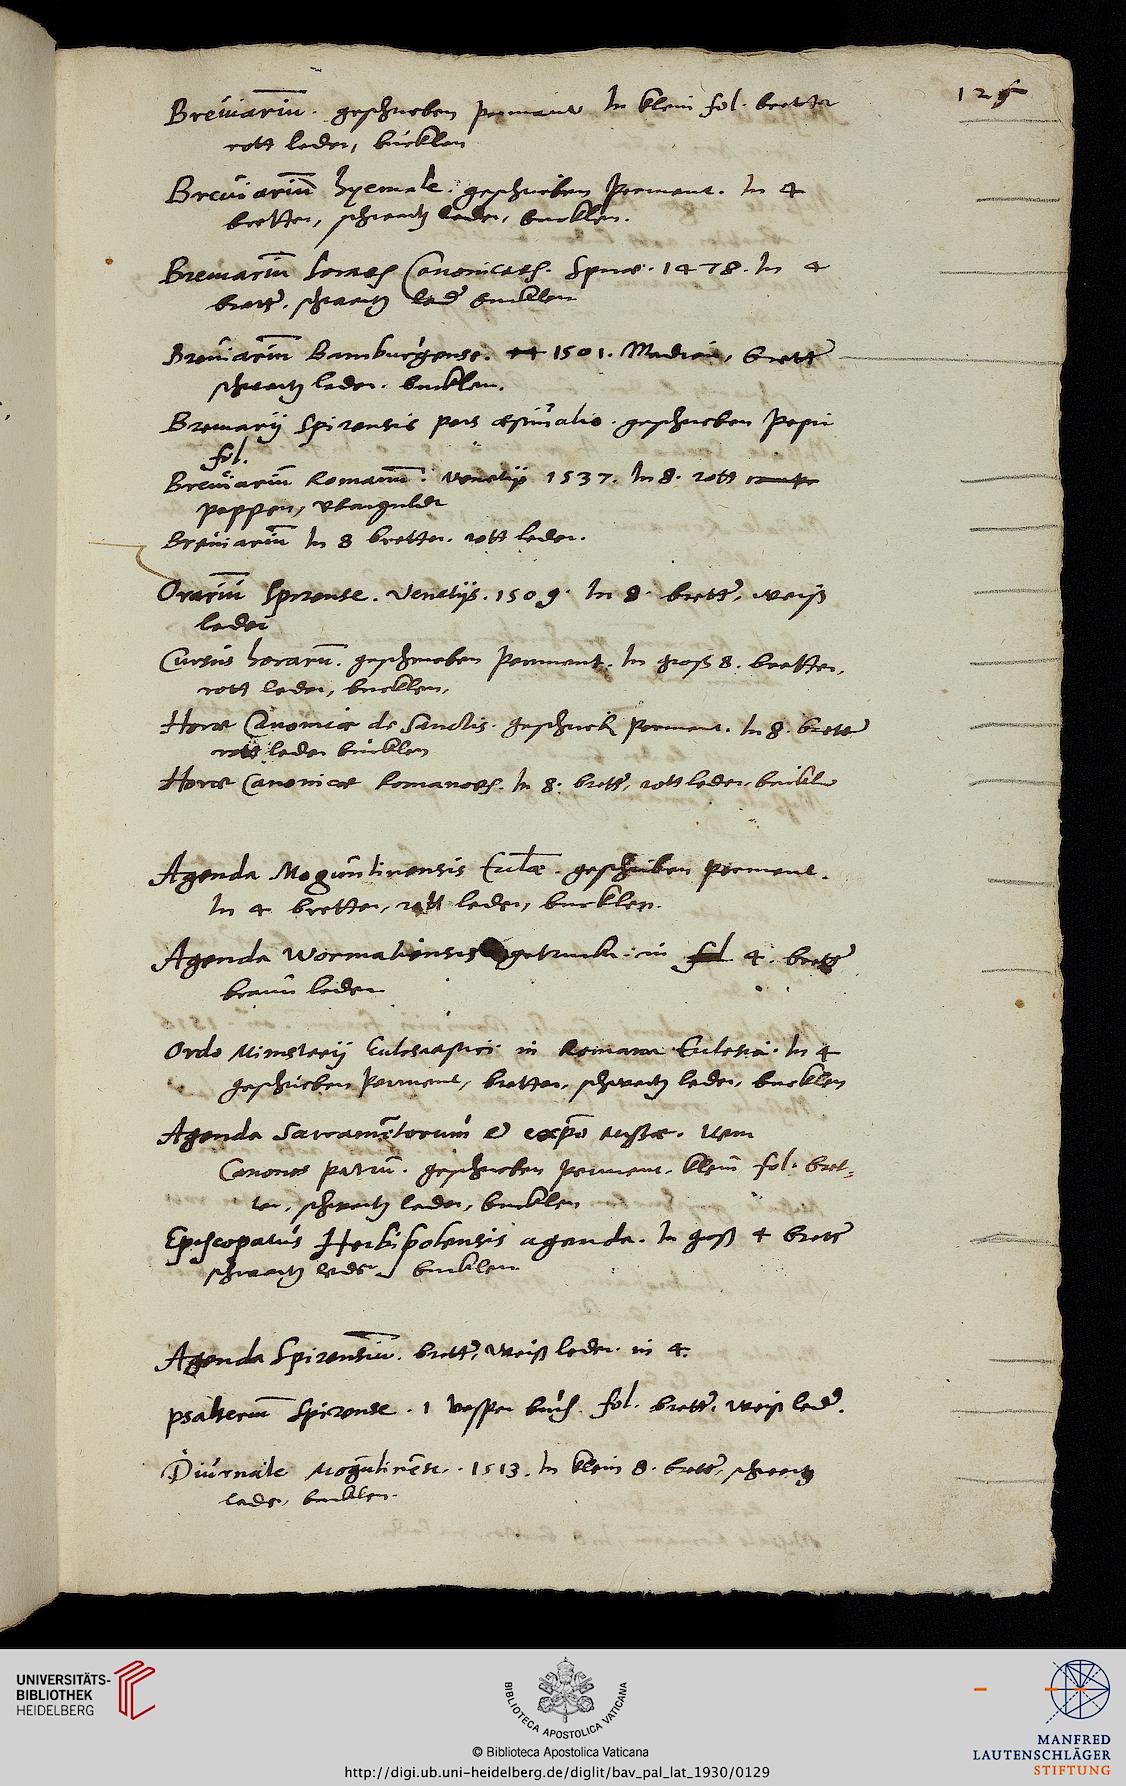 125
Breuiariū. geschrieben perment In klein fol. bretter
rott leder, bücklen
Breuiariū hyemale. geschrieben Perment. In 4
bretter, schwartz leder, bucklen.
Breuiariū horaes Canonicaes. Spirae. 1478. In 4
brett. schwartz led bucklen
Breuiariū Bamburgense. 1501. brett
schwartz leder. bucklen.
Breuiarij Spirensis pars aestiualis. geschrieben Papir
fol.
Breuiariū Romanū. Venetijs 1537. In 8. rott
pappen, vberguldt
Breuiariū In 8 bretter. rott leder.
Orariū Spirense. Venetijs. 1509. In 8. brett, weiß
leder
Cursus horarū. geschrieben Perment. In groß 8. bretter,
rott leder, bucklen,
Horae Canonicae de Sanctis. geschrieb Perment. In 8. brett
leder bücklen
Horae Canonicae Romanoes. In 8. brett, rott leder, bückl
Agenda Moguntinensis Ecclae. geschriben perment.
In 4 bretter, rott leder, bucklen.
Agenda Wormatiensis getruckt. in 4. brett
braun leder
Ordo Ministerij Ecclesiastici in Romana Ecclesia. In 4
geschrieben Perment, bretter, schwartz leder, bucklen
Agenda Sacramētorum & expō missae. Item
Canones patrū. geschrieben perment. klein fol. bret-
ter, schwartz leder, bucklen
Episcopatus Herbipolensis agenda. In groß 4 brett
schwartz leder, bucklen
Agenda Spirensiū. brett, weiß leder in 4.
psalteriū Spirense. 1 Vesper buch. fol. brett. weiß led.
Diurnale Mogūtinēse. 1513. In klein 8. brett, schwartz
leder, bucklen.
UNIVERSITÄTS-
BIBLIOTHEK
HEIDELBERG
BIBLIOTECA APOSTOLICA VATICANA
© Biblioteca Apostolica Vaticana
http://digi.ub.uni-heidelberg.de/diglit/bav_pal_lat_1930/0129
MANFRED
LAUTENSCHLÄGER
STIFTUNG